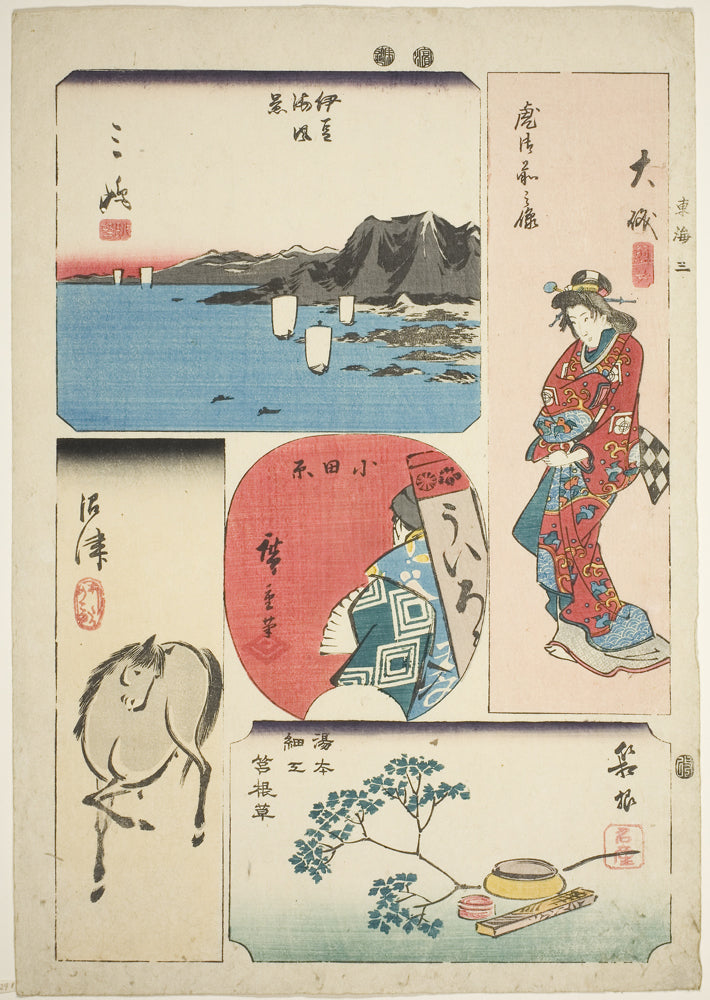 東海 三
大磯
虎御前之像
伊豆
海風
景
三嶋
小田原
ういろう
廣重筆
沼津
箱根
名産
湯本
細工
箱根草